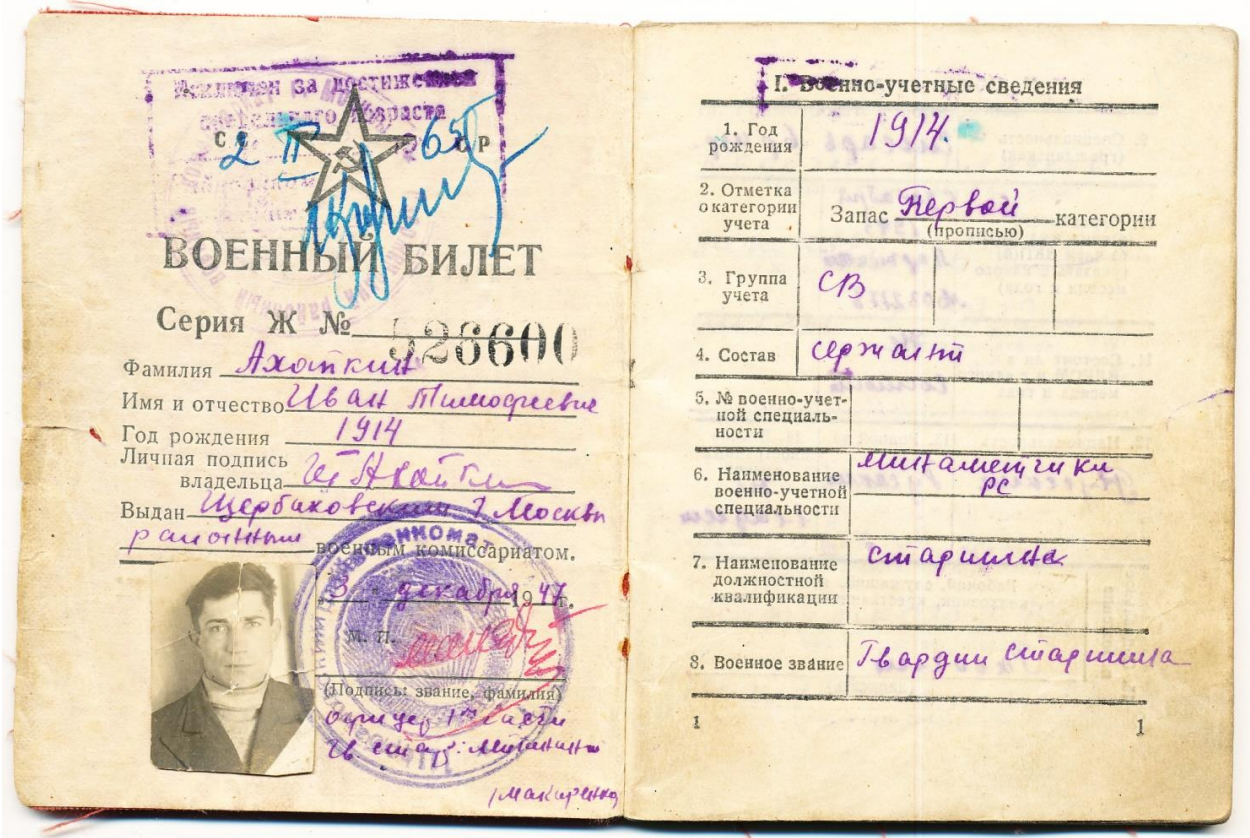 Исключен за достижением
предельного возраста
СССР
2 II 65
ВОЕННЫЙ БИЛЕТ
Серия Ж № 526600
Фамилия Ахапкин
Имя и отчество Иван Тимофеевич
Год рождения 1914
Личная подпись
владельца
Выдан Щербаковским г. Москвы
районным военным комиссариатом.
3 декабря 1947 г.
М. П.
(Подпись: звание, фамилия)
офицер 1 части
гв
1
I. Военно-учетные сведения
1. Год
рождения
1914.
2. Отметка
о категории
учета
Запас Первой категории
(прописью)
3. Группа
учета
СВ
4. Состав
сержант
5. № военно-учет-
ной специаль-
ности
6. Наименование
военно-учетной
специальности
минаметчики
РС
7. Наименование
должностной
квалификации
старшина
8. Военное звание Гвардии старшина
1